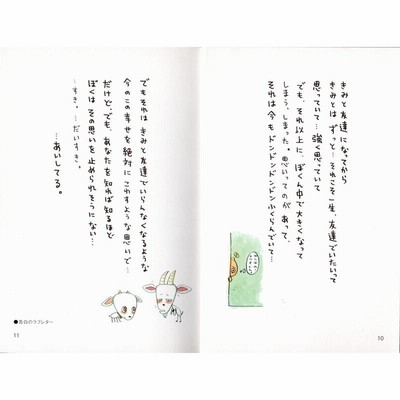 きみと友達になってから
きみとは ずっと…それこそ一生、友達でいたいって
思っていて… 強く思っていて
でも、それ以上に、ぼくん中で大きくなって
しまう、しまった。思いってのが あって、
それは今もドンドンドンドンふくらんでいて…
10
でもそれは きみと友達でいらんなくなるような
今のこの幸せを絶対に こわすような思いで…
だけど、でも、あなたを知れば知るほど
ぼくは その思いを止められそうにない…
…すき。…だいすき。
…あいしてる。
●告白のラブレター
11